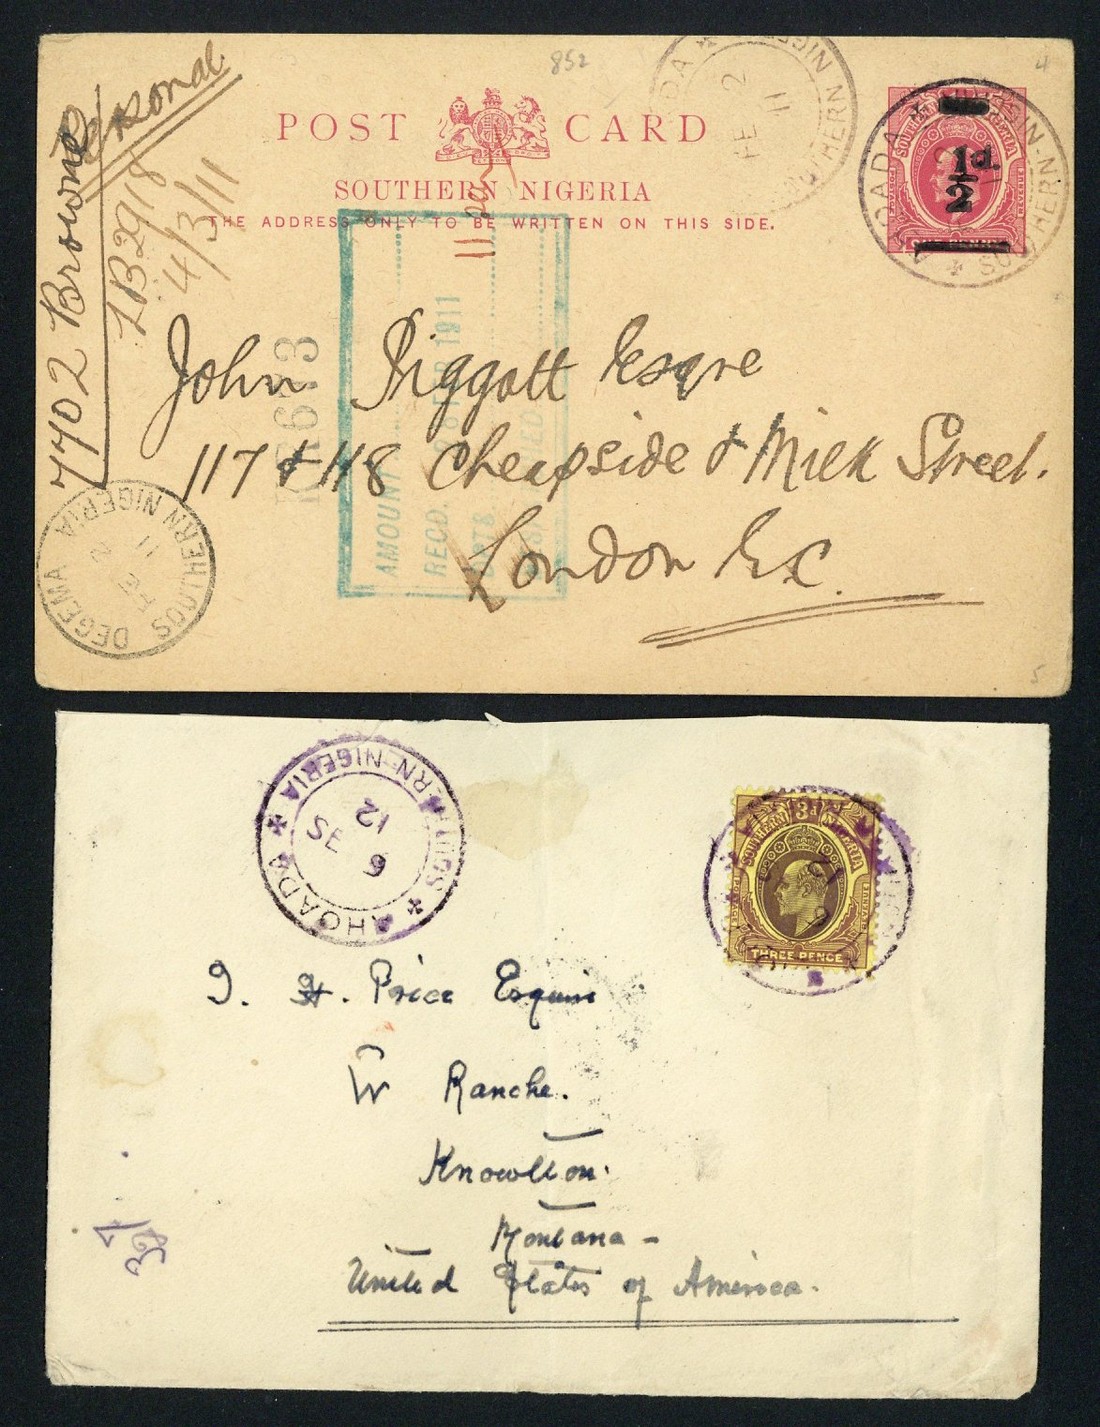 852
4
Personal
7702 Browne
LB 29/18
4/3/11
POST CARD
SOUTHERN NIGERIA
THE ADDRESS ONLY TO BE WRITTEN ON THIS SIDE.
SOUTHERN NIGERIA
POSTAGE REVENUE
½d.
FE 2
11
SOUTHERN NIGERIA
SOUTHERN-NIGERIA
K6
AMOUNT
RECD. 8 FEB 1911
John Piggott Esqre
117 & 118 Cheapside & Milk Street.
London E.C.
DEGEMA SOUTHERN NIGERIA
FE 2
11
5
AHOADA SOUTHERN-NIGERIA
6 SE
12
SOUTHERN 3d NIGERIA
POSTAGE REVENUE
THREE PENCE
J. H. Price Esquire
W Ranche.
Knowlton.
Montana -
United States of America.